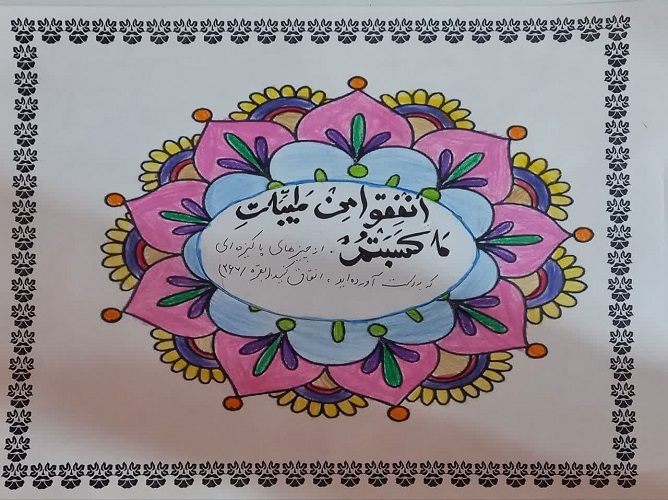 انفقوا من طیّبٰتِ
ما کسبتُم. از چیزهای پاکیزه ای
که بدست آورده اید، انفاق کنید (بقره /۲۶۷)